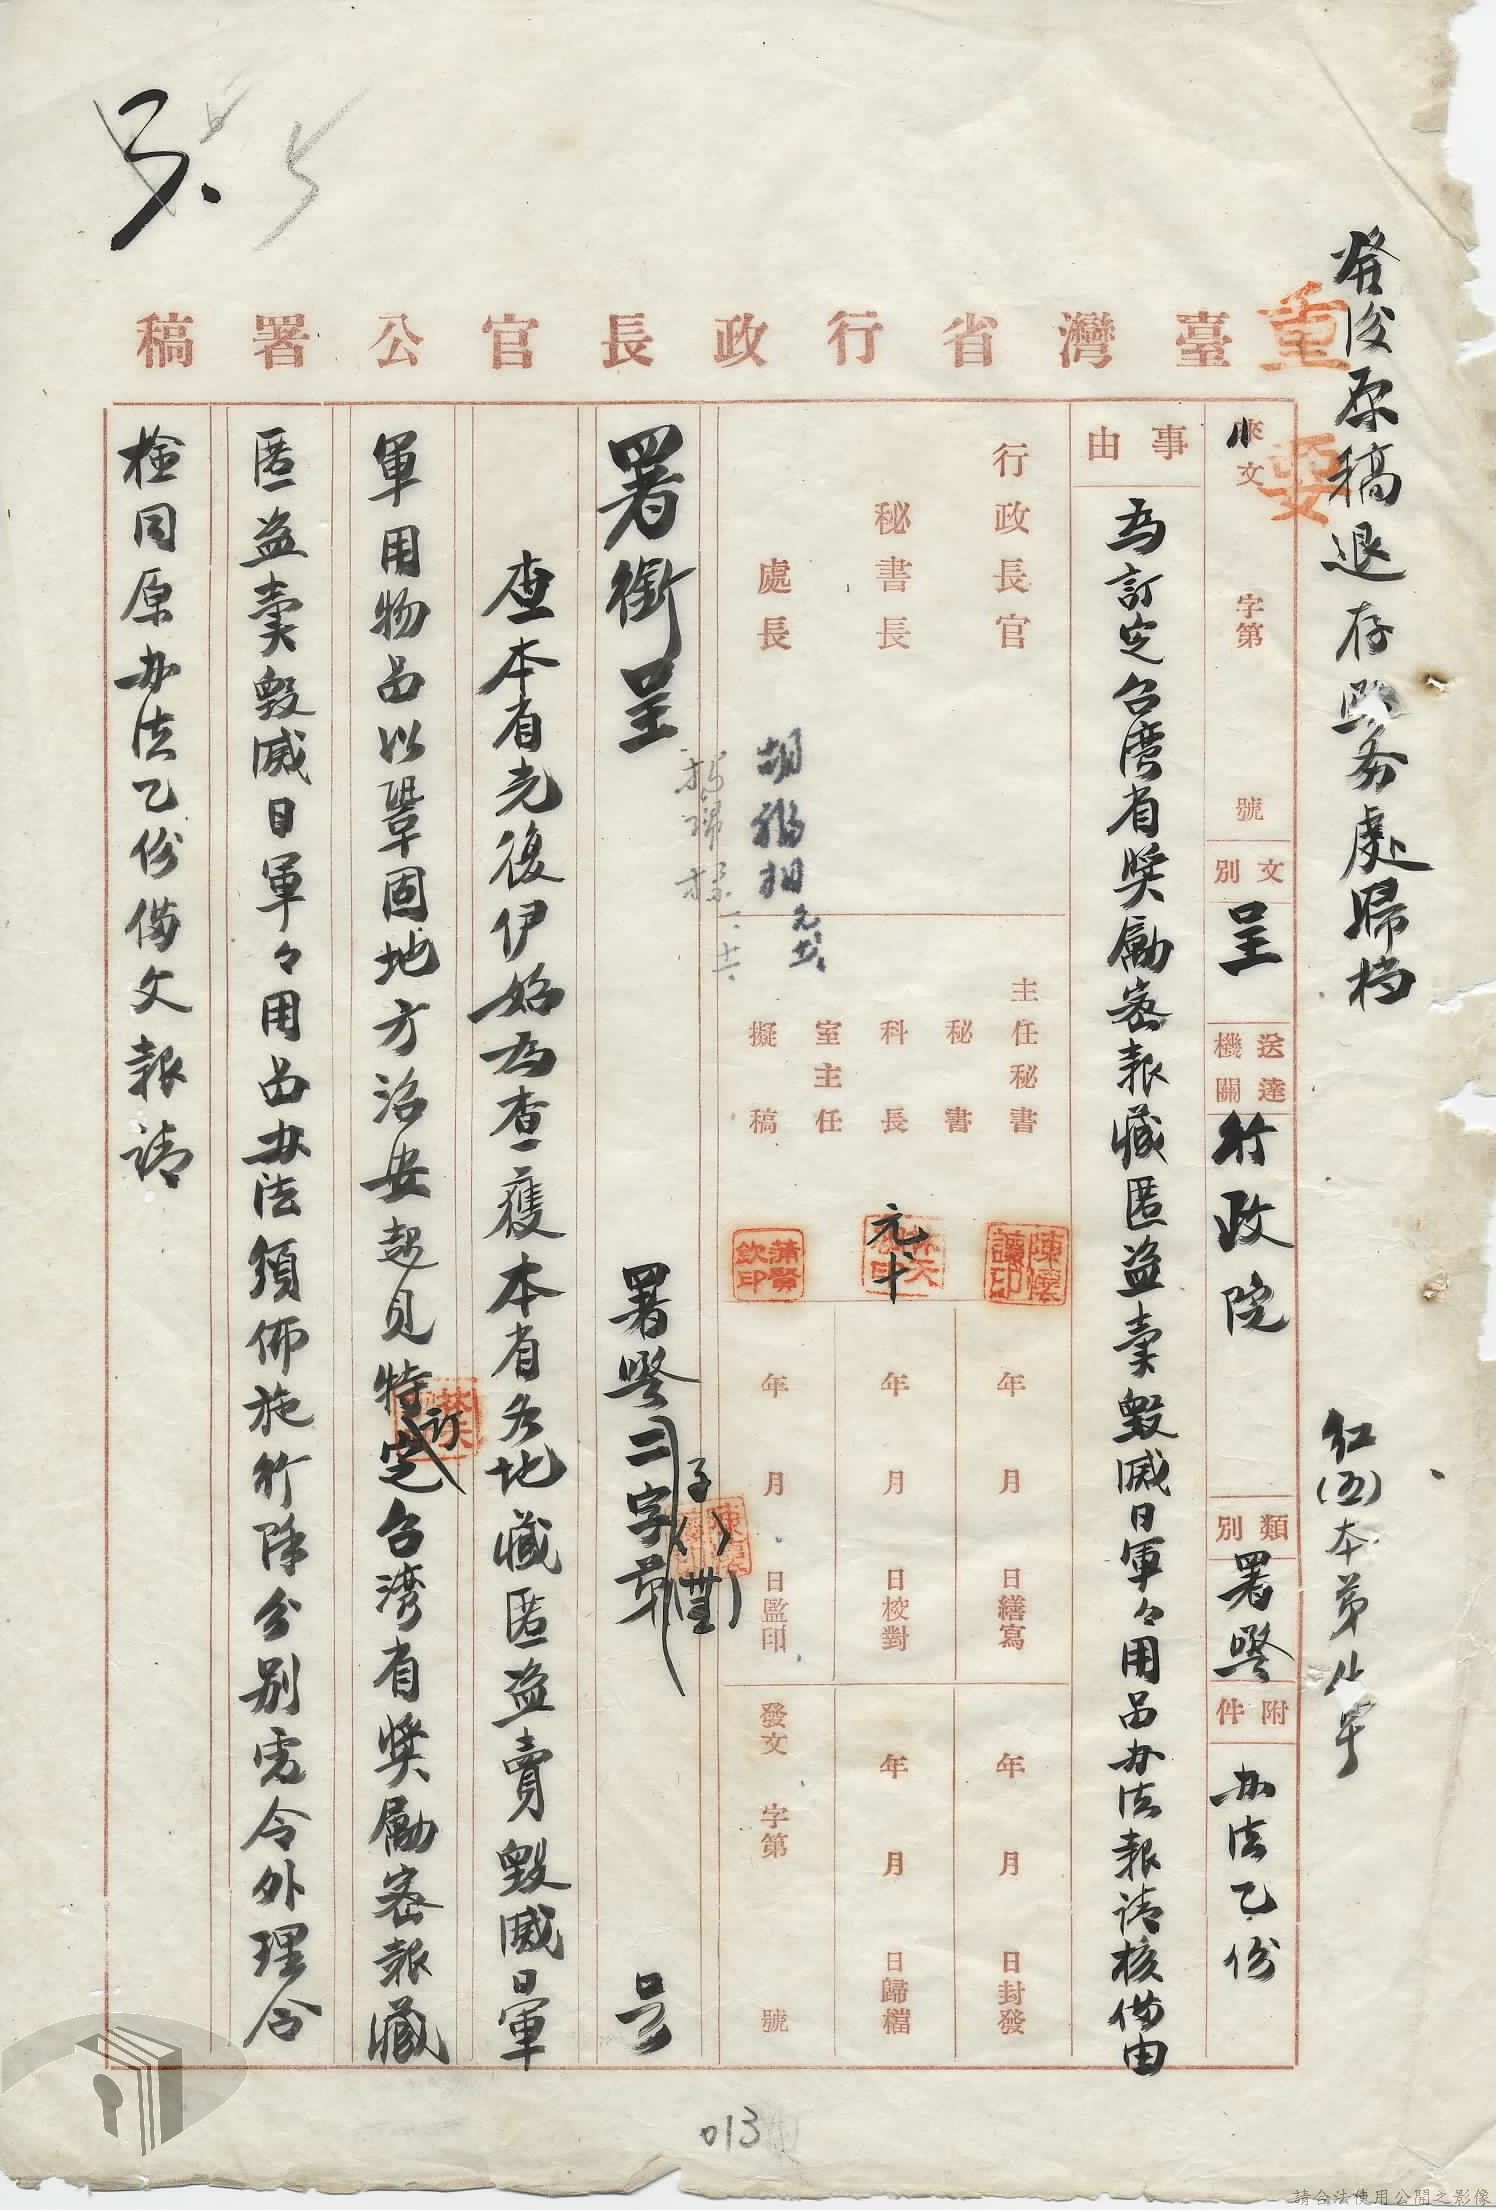 發後原稿退存 務處歸档
紅(五)本第 号
重要
臺灣省行政長官公署稿
來文 字第 號
文別 呈
送達機關 行政院
類別 署警
附件 办法乙份
事由
為訂定台湾省奬勵密報藏匿盗賣毀滅日軍々用品办法報請核備由
行政長官
秘書長
處長
主任秘書
秘書
科長
室主任
擬稿
胡福相
陳讓印
元
蒲賢欽印
年 月 日繕寫
年 月 日校對
年 月 日監印
年 月 日封發
年 月 日歸檔
發文 字第 號
署銜呈 署警二字第 号
子
查本省光復伊始為查獲本省各地藏匿盗賣毀滅日軍
軍用物品以鞏固地方治安起見特訂定台湾省奬勵密報藏
匿盗賣毀滅日軍々用品办法頒佈施行除分别電令外理合
檢同原办法乙份備文報請
013
請合法使用公開之影像